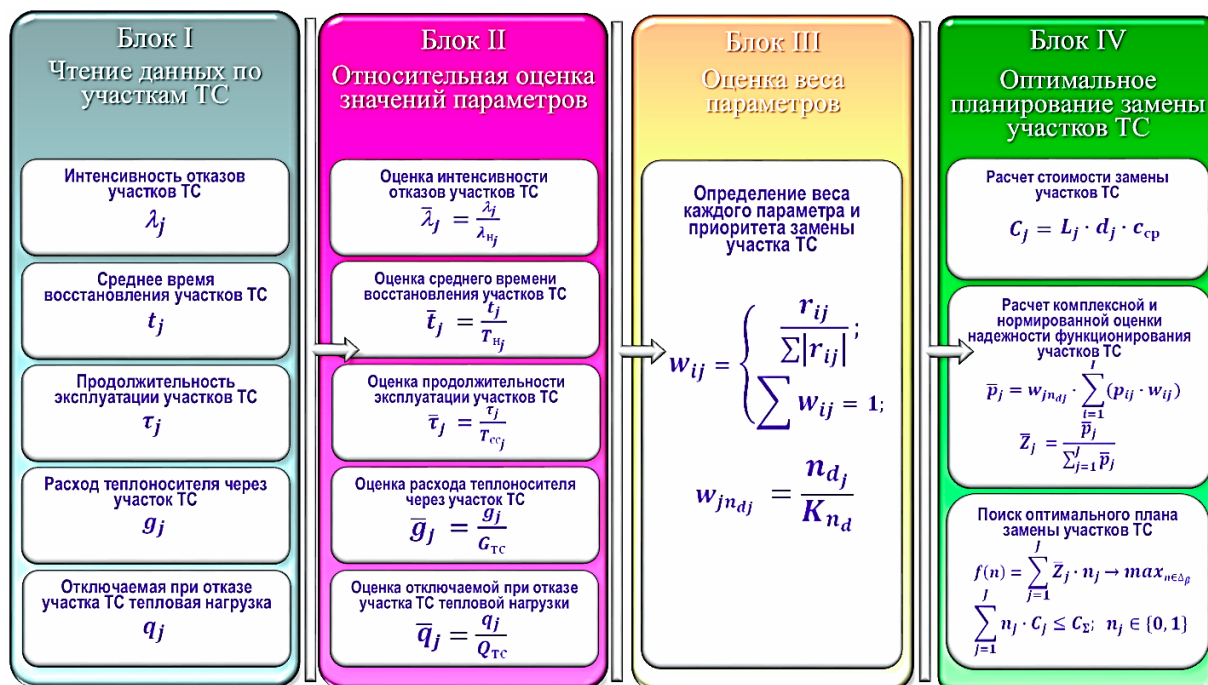 Блок I
Чтение данных по
участкам ТС
Интенсивность отказов
участков ТС
λ_j
Среднее время
восстановления участков ТС
t_j
Продолжительность
эксплуатации участков ТС
τ_j
Расход теплоносителя через
участок ТС
g_j
Отключаемая при отказе
участка ТС тепловая нагрузка
q_j
Блок II
Относительная оценка
значений параметров
Оценка интенсивности
отказов участков ТС
λ̅_j = λ_j / λ_{н_j}
Оценка среднего времени
восстановления участков ТС
t̅_j = t_j / T_{н_j}
Оценка продолжительности
эксплуатации участков ТС
τ̅_j = τ_j / T_{сс_j}
Оценка расхода теплоносителя
через участок ТС
g̅_j = g_j / G_{ТС}
Оценка отключаемой при отказе
участка ТС тепловой нагрузки
q̅_j = q_j / Q_{ТС}
Блок III
Оценка веса
параметров
Определение веса
каждого параметра и
приоритета замены
участка ТС
w_{ij} = { r_{ij} / ∑|r_{ij}| ;
∑ w_{ij} = 1;
w_{jn_{dj}} = n_{d_j} / K_{n_d}
Блок IV
Оптимальное
планирование замены
участков ТС
Расчет стоимости замены
участков ТС
C_j = L_j · d_j · c_{ср}
Расчет комплексной и
нормированной оценки
надежности функционирования
участков ТС
p̅_j = w_{jn_{dj}} · ∑_{i=1}^{I} (p_{ij} · w_{ij})
Z̅_j = p̅_j / ∑_{j=1}^{J} p̅_j
Поиск оптимального плана
замены участков ТС
f(n) = ∑_{j=1}^{J} Z̅_j · n_j → max_{n∈Δ_β}
∑_{j=1}^{J} n_j · C_j ≤ C_Σ; n_j ∈ {0, 1}